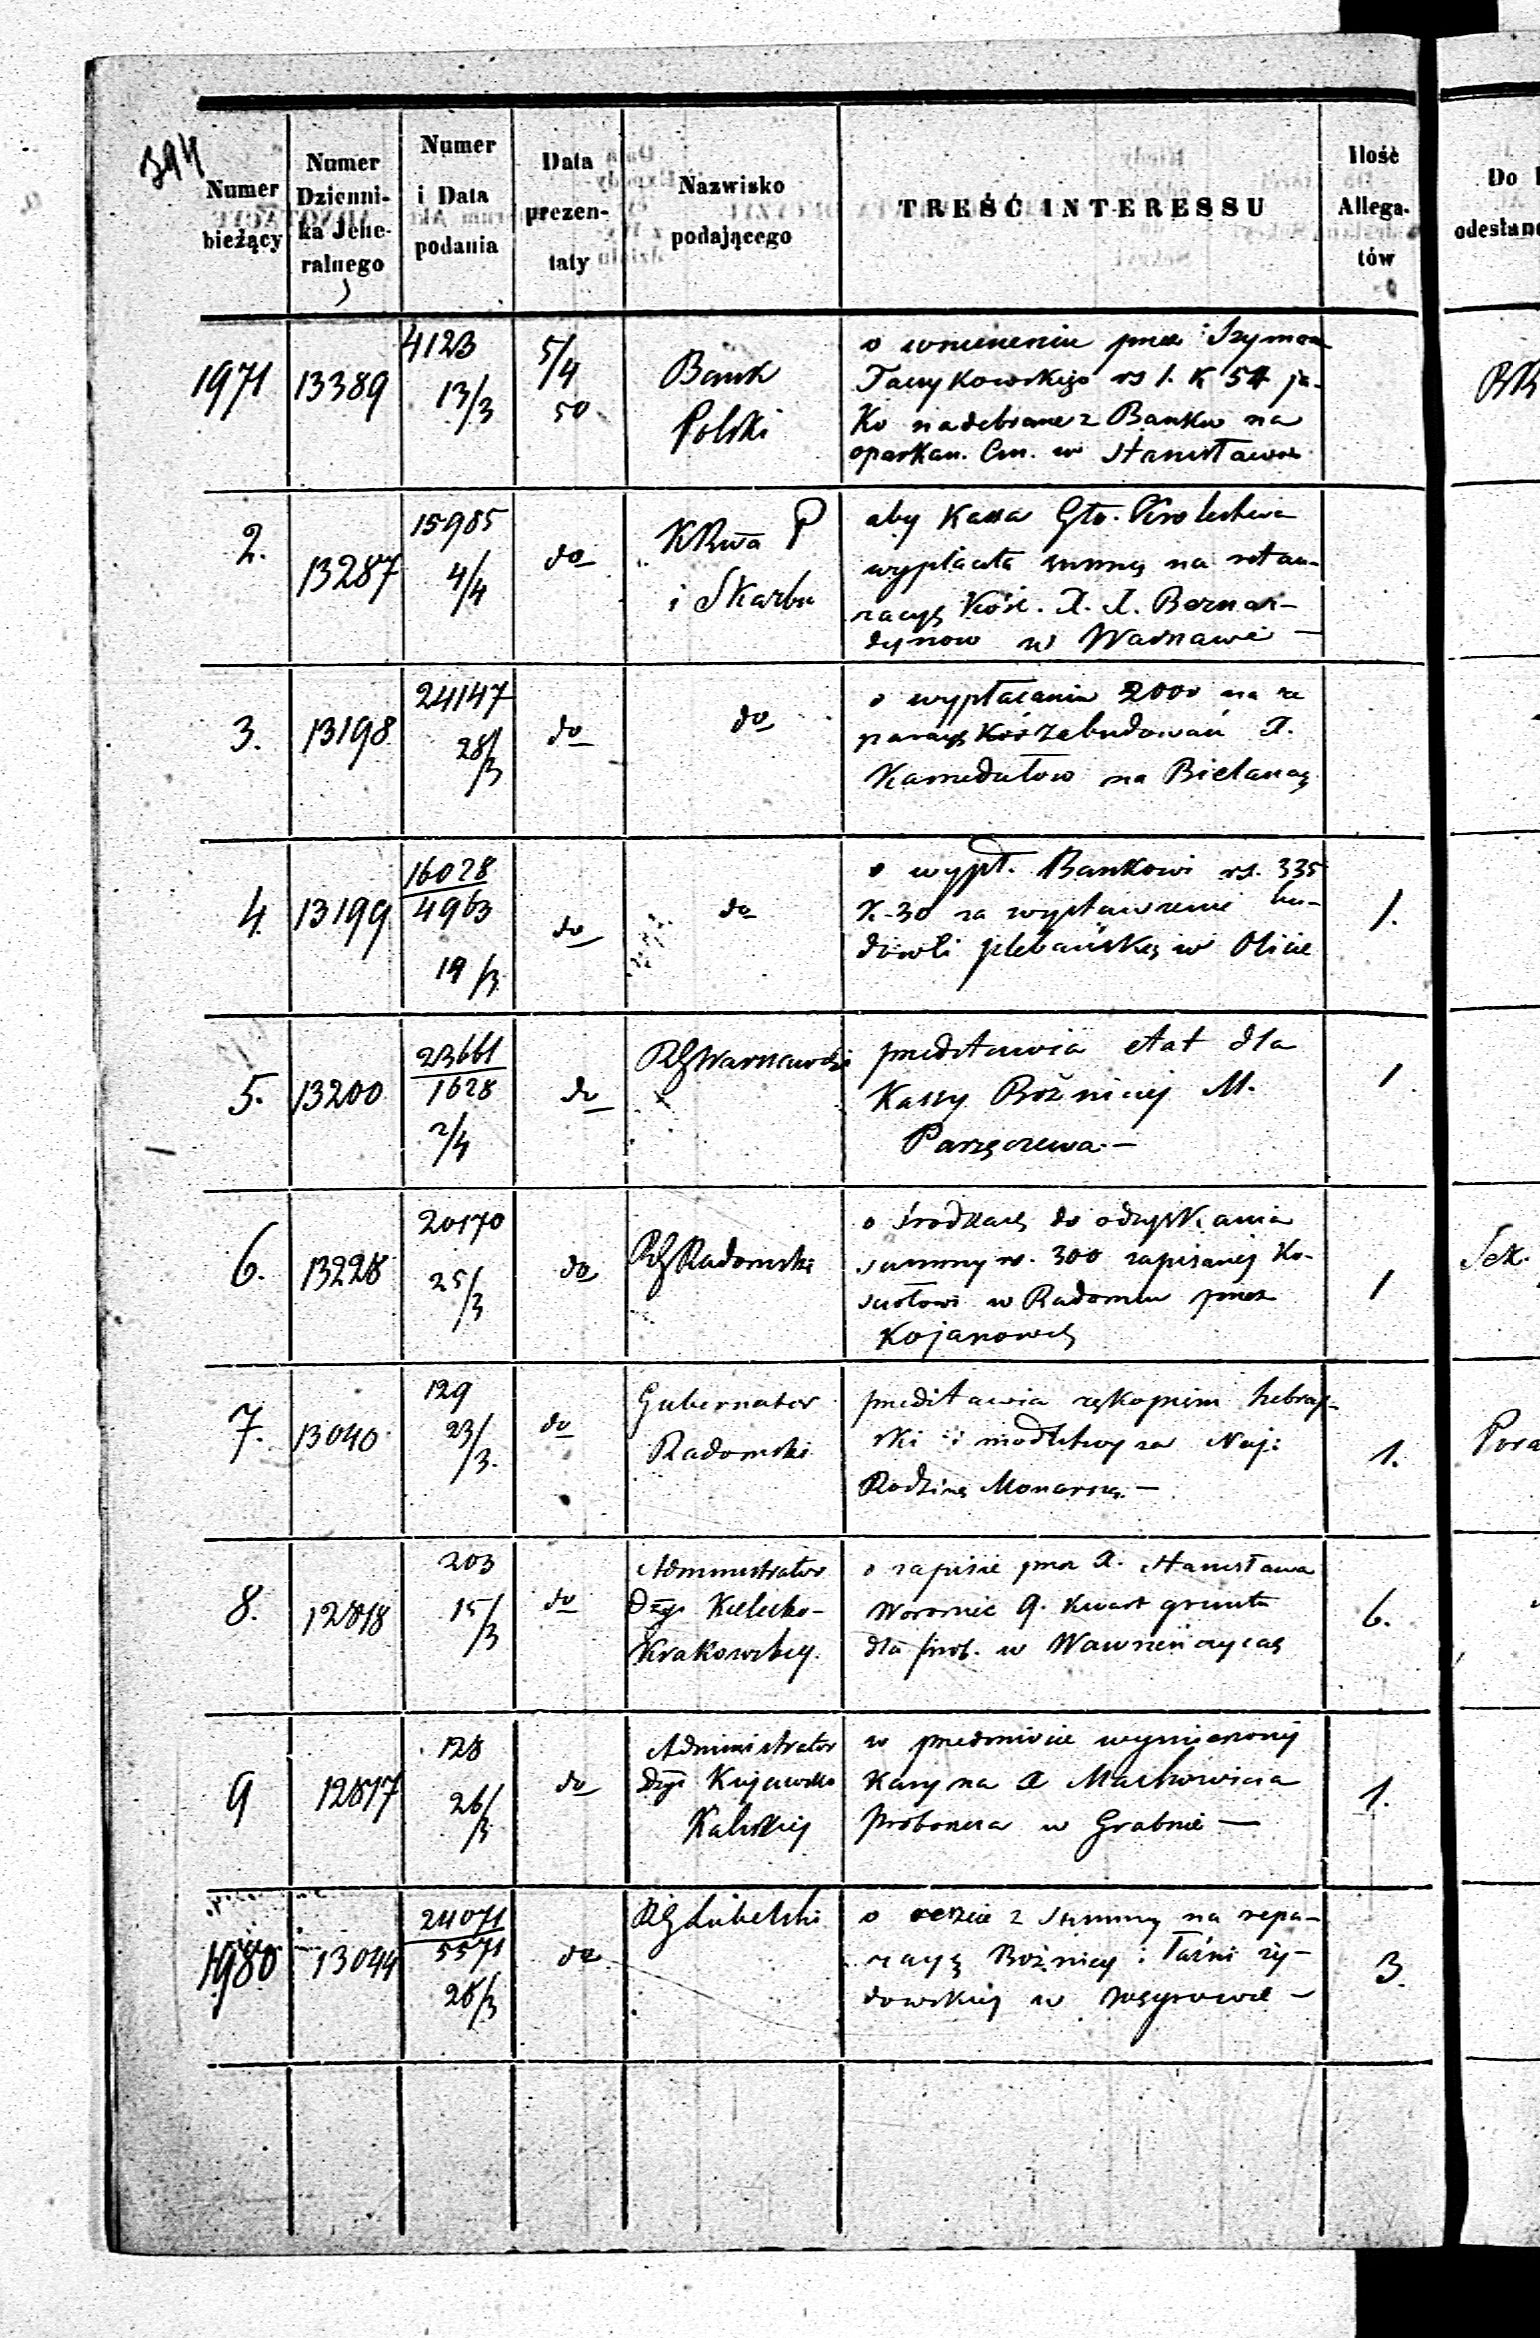 394
Numer bieżący
Numer Dziennika Jeneralnego
Numer i Data podania
Data prezentaty
Nazwisko podającego
TREŚĆ INTERESSU
Ilość Allegatów
Do
odesłano
1971 13389 4123 13/3 5/4 50 Bank Polski
o wniesieniu przez Szymona
rs 1. k 54 ja-
ko nadebrane z Banku na
oparkan. Cm. w Stanisławow
2. 13287 15985 4/4 do KRwa P i Skarbu
aby Kassa Gło. Królestwa
wypłaciła summę na restau-
racyę Kość. X. X. Bernar-
dynow w Warszawie —
3. 13198 24147 28/3 do do
o wypłacenie 2000 na re
paracyę zabudowań X.
Kamedułow na Bielanach
4. 13199 16028 4963 19/3 do do 1.
o wypł. Bankowi rs. 335
k. 30 za wystawienie bu-
dowli plebańskiej w Olicie
5. 13200 23661 1628 2/4 do RG Warszawski 1
przedstawia etat dla
Kassy Bożniczej M.
Parzęczewa. —
6. 13228 20170 25/3 do RG Radomski 1
o środkach do odzyskania
summy rs. 300 zapisanej Ko-
sciołowi w Radomiu przez
Kojanows
Sek.
7. 13040 129 23/3 do Gubernator Radomski 1.
przedstawia rękopism hebraj-
ski modlitwy za Naj:
Rodzinę Monarszą. —
8. 12818 203 15/3 do Administrator Dyec. Kielecko-Krakowskiej 6.
o zapisie przez X. Stanisława
9. kwart gruntu
dla prob. w Wawrzeńczycach
9 12817 128 26/3 do Administrator Dyec. Kujawsko Kaliskiej 1.
w przedmiocie wymierzonej
kary na X Machowicza
Proboszcza w Grabnie —
1980 13044 24071 5571 26/3 do RG Lubelski 3.
o reszcie z summy na repa-
racyę Bożnicy i Łaźni ży-
dowskiej w Węgrowie —